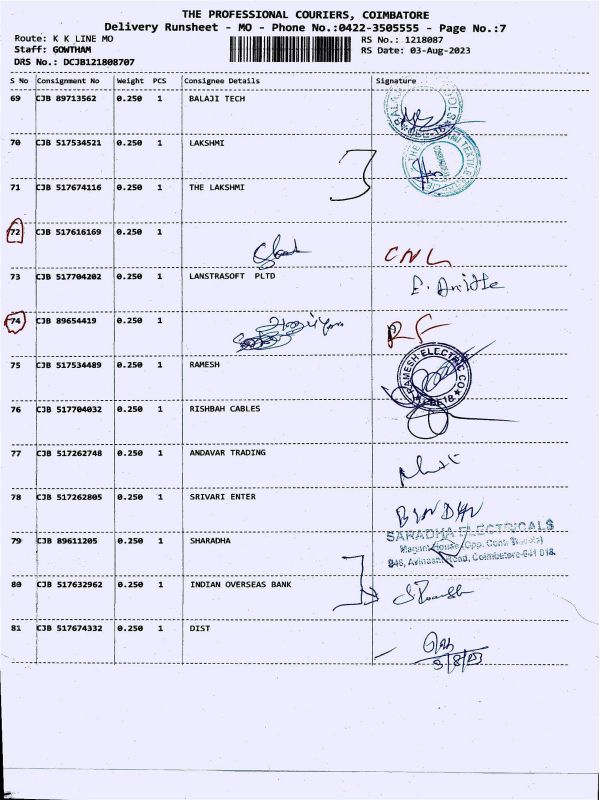 THE PROFESSIONAL COURIERS, COIMBATORE
Delivery Runsheet - MO - Phone No.:0422-3505555 - Page No.:7
Route: K K LINE MO RS No.: 1218087
Staff: GOWTHAM RS Date: 03-Aug-2023
DRS No.: DCJB121808707
S No Consignment No Weight PCS Consignee Details Signature
69 CJB 89713562 0.250 1 BALAJI TECH
70 CJB 517534521 0.250 1 LAKSHMI
71 CJB 517674116 0.250 1 THE LAKSHMI
72 CJB 517616169 0.250 1
CNL
73 CJB 517704202 0.250 1 LANSTRASOFT PLTD
74 CJB 89654419 0.250 1
RF
75 CJB 517534489 0.250 1 RAMESH
RAMESH ELECTRIC CO
76 CJB 517704032 0.250 1 RISHBAH CABLES
77 CJB 517262748 0.250 1 ANDAVAR TRADING
78 CJB 517262805 0.250 1 SRIVARI ENTER
SARADHA ELECTRICALS
79 CJB 89611205 0.250 1 SHARADHA
946, Avinashi Road, Coimbatore-641 018.
80 CJB 517632962 0.250 1 INDIAN OVERSEAS BANK
81 CJB 517674332 0.250 1 DIST
3/8/23